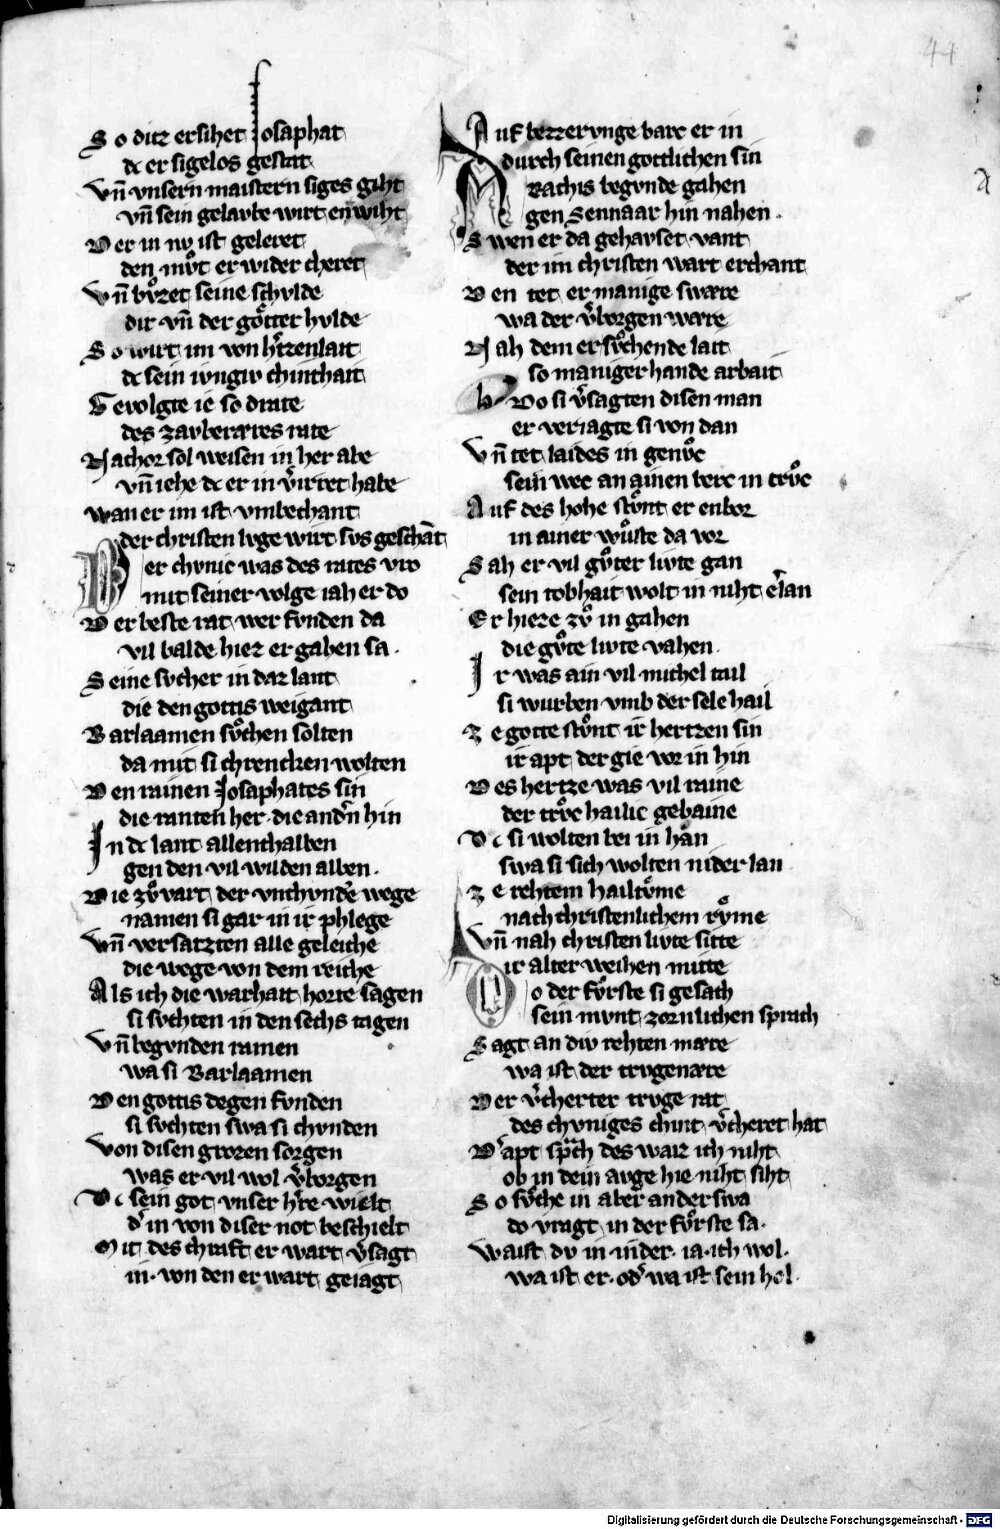 44
So ditz ersihet Josaphat
dc er sigelos gestat
Vn̄ vnsern maistern siges giht
vn̄ sein gelavbe wirt enwiht
Der in nv ist geleret
den mv̊t er wider cheret
Vn̄ bv̊zet seine schvlde
dir vn̄ der goͤtter hvlde
So wirt im von h̾tzenlait
dc sein ivngiv chinthait
Gevolgte ie so drate
des zavberæres rate
Nachor sol weisen in her abe
vn̄ iehe dc er in v̾irret habe
wan er im ist vmbechant
der christen lvge wirt svs geschāt
Der chvnic was des rates vro
mit seiner volge iah er do
Der beste rat wer fvnden da
vil balde hiez er gahen sa.
Seine svcher in daz lant
die den gottis weigant
Barlaamen sv̊chen solten
da mit si chrenchen wolten
Den rainen Josaphates sin
die ranten her. die and̾n hin
In dc lant allenthalben
gen den vil wilden alben.
Die zv̊vart der vnchvnd̾e wege
namen si gar in ir phlege
Vn̄ versatzten alle geleiche
die wege von dem reiche
Als ich die warhait horte sagen
si svchten in den sechs tagen
Vn̄ begvnden ramen
wa si Barlaamen
Den gottis degen fvnden
si svchten swa si chvnden
Von disen grozen sorgen
was er vil wol v̾borgen
Dc sein got vnser h̾re wielt
d̾ in von diser not beschielt
Mit des chraft er wart v̾sagt
in. von den er wart geiagt
Auf bezzervnge barc er in
durch seinen gottlichen sin
Arachis begvnde gahen
gen Sennaar hin nahen.
Swen er da gehavset vant
der im christen wart erchant
Den tet er manige swære
wa der v̾borgen wære
Nah dem er sv̊chende lait
so maniger hande arbait
Do si v̾sagten disen man
er veriagte si von dan
Vn̄ tet laides in genv̊c
sein wec an ainen berc in trv̊c
Auf des hohe stv̊nt er enbor
in ainer wv̊ste da vor
Sah er vil gv̊ter livte gan
sein tobhait wolt in niht e̾lan
Er hieze zv̊ in gahen
die gv̊te livte vahen.
Ir was ain vil michel tail
si wurben vmb der sele hail
Ze gotte stv̊nt ir hertzen sin
ir apt der gie vor in hin
Des hertze was vil raine
der trv̊c hailic gebaine
Dc si wolten bei in han
swa si sich wolten nider lan.
Ze rehtem hailtv̊me
nach christenlichem rv̊me
Vn̄ nah christen livte sitte
ir alter weihen mitte
Do der fv̊rste si gesach
sein mvnt zornlichen sprach
Sagt an div rehten mære
wa ist der trvgenære
Der v̾cherter trvge rat
des chvniges chint v̾cheret hat
D̾ apt sp̾ch des waiz ich niht
ob in dein avge hie niht siht
So sv̊che in aber anderswa
do vragt in der fv̊rste sa.
Waist dv in inder. ia. ich wol.
wa ist er. od̾ wa ist sein hol.
Digitalisierung gefördert durch die Deutsche Forschungsgemeinschaft - DFG